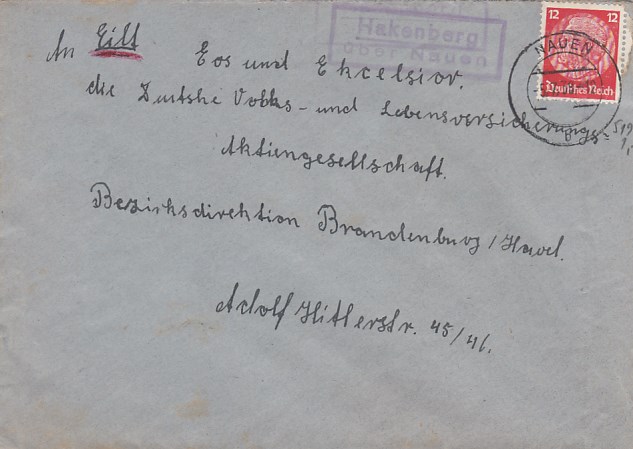 Hakenberg
über Nauen
12 12
Deutsches Reich
NAUEN
An Eilt Eos und Ekcelsior.
die Deutshe Volks- und Lebensversicherungs-
Aktiengesellschaft.
Bezirksdirektion Brandenburg/Havel.
Adolf Hitlerstr. 45/46.